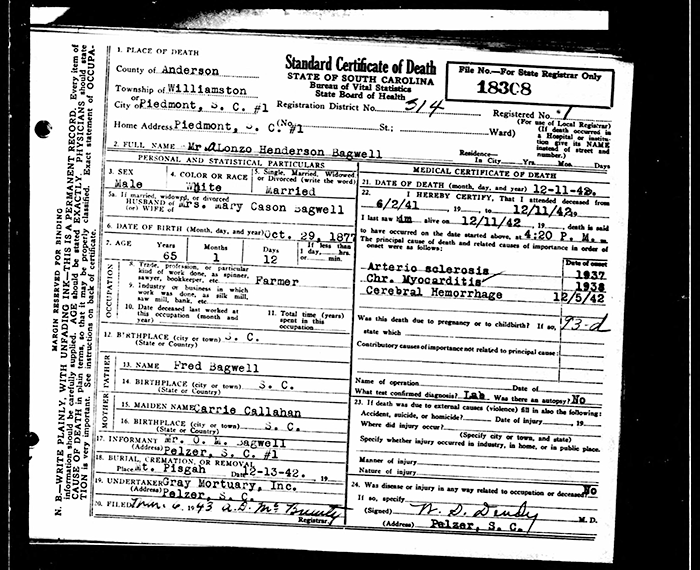 N. B.—WRITE PLAINLY, WITH UNFADING INK—THIS IS A PERMANENT RECORD. Every item of
information should be carefully supplied. AGE should be stated EXACTLY. PHYSICIANS should state
CAUSE OF DEATH in plain terms, so that it may be properly classified. Exact statement of OCCUPA-
TION is very important. See instructions on back of certificate.
MARGIN RESERVED FOR BINDING
Standard Certificate of Death
STATE OF SOUTH CAROLINA
Bureau of Vital Statistics
State Board of Health
File No.—For State Registrar Only
18308
1. PLACE OF DEATH
County of Anderson
Township of Williamston
or
City of Piedmont, S. C. #1
Registration District No. 314
Registered No. 1
(For use of Local Registrar)
(If death occurred in
a Hospital or institu-
tion give its NAME
instead of street and
number.)
Home Address Piedmont, S. C. #1 (No. St.; Ward)
2. FULL NAME Mr. Alonzo Henderson Bagwell
Residence—
In City Yrs. Mos. Days
PERSONAL AND STATISTICAL PARTICULARS
3. SEX
Male
4. COLOR OR RACE
White
5. Single, Married, Widowed
or Divorced (write the word)
Married
5a. If married, widowed, or divorced
HUSBAND of
(or) WIFE of Mrs. Mary Cason Bagwell
6. DATE OF BIRTH (Month, day, and year) Oct. 29, 1877
7. AGE Years Months Days If less than
1 day, hrs.
or min.
65 1 12
OCCUPATION
8. Trade, profession, or particular
kind of work done, as spinner,
sawyer, bookkeeper, etc. Farmer
9. Industry or business in which
work was done, as silk mill,
saw mill, bank, etc.
10. Date deceased last worked at
this occupation (month and
year)
11. Total time (years)
spent in this
occupation
12. BIRTHPLACE (city or town) S. C.
(State or Country)
FATHER
13. NAME Fred Bagwell
14. BIRTHPLACE (city or town) S. C.
(State or Country)
MOTHER
15. MAIDEN NAME Carrie Callahan
16. BIRTHPLACE (city or town) S. C.
(State or Country)
17. INFORMANT Mr. O. M. Bagwell
(Address) Pelzer, S. C. #1
18. BURIAL, CREMATION, OR REMOVAL
Place Mt. Pisgah Date 12-13-42. 19
19. UNDERTAKER Gray Mortuary, Inc.
(Address) Pelzer, S. C.
20. FILED 6, 1943
Registrar
MEDICAL CERTIFICATE OF DEATH
21. DATE OF DEATH (month, day, and year) 12-11-42.
22. I HEREBY CERTIFY, That I attended deceased from
6/2/41, 19 to 12/11/42, 19
I last saw him alive on 12/11/42, 19, death is said
to have occurred on the date stated above, at 4:20 P. M. m.
The principal cause of death and related causes of importance in order of
onset were as follows:
Date of onset
Arterio sclerosis 1937
Chr. Myocarditis 1938
Cerebral Hemorrhage 12/5/42
Was this death due to pregnancy or to childbirth? If so,
state which 93-d
Contributory causes of importance not related to principal cause:
Name of operation Date of
What test confirmed diagnosis? Lab. Was there an autopsy? No
23. If death was due to external causes (violence) fill in also the following:
Accident, suicide, or homicide? Date of injury 19
Where did injury occur?
(Specify city or town, and state)
Specify whether injury occurred in industry, in home, or in public place.
Manner of injury
Nature of injury
24. Was disease or injury in any way related to occupation or deceased? No
If so, specify
(Signed) W. D. Dendy M. D.
(Address) Pelzer, S. C.